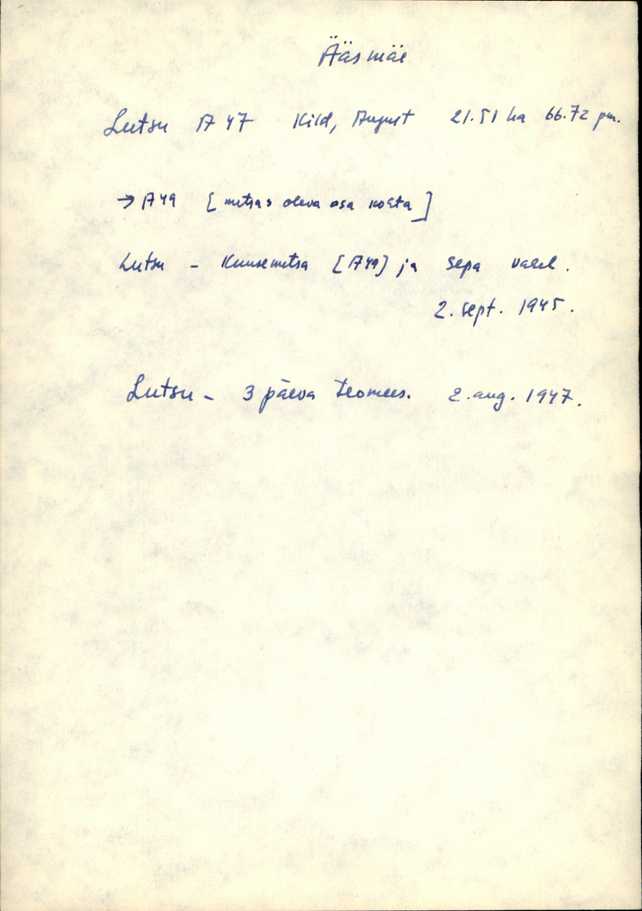 Ääsmäe
Lutsu A 47 Kild, August 21.51 ha 66.72 pm.
→ A49 [metsas oleva osa kohta]
Lutsu - Kuusemetsa [A49] ja Sepa vahel.
2. sept. 1945.
Lutsu - 3 päeva teomees. 2. aug. 1947.